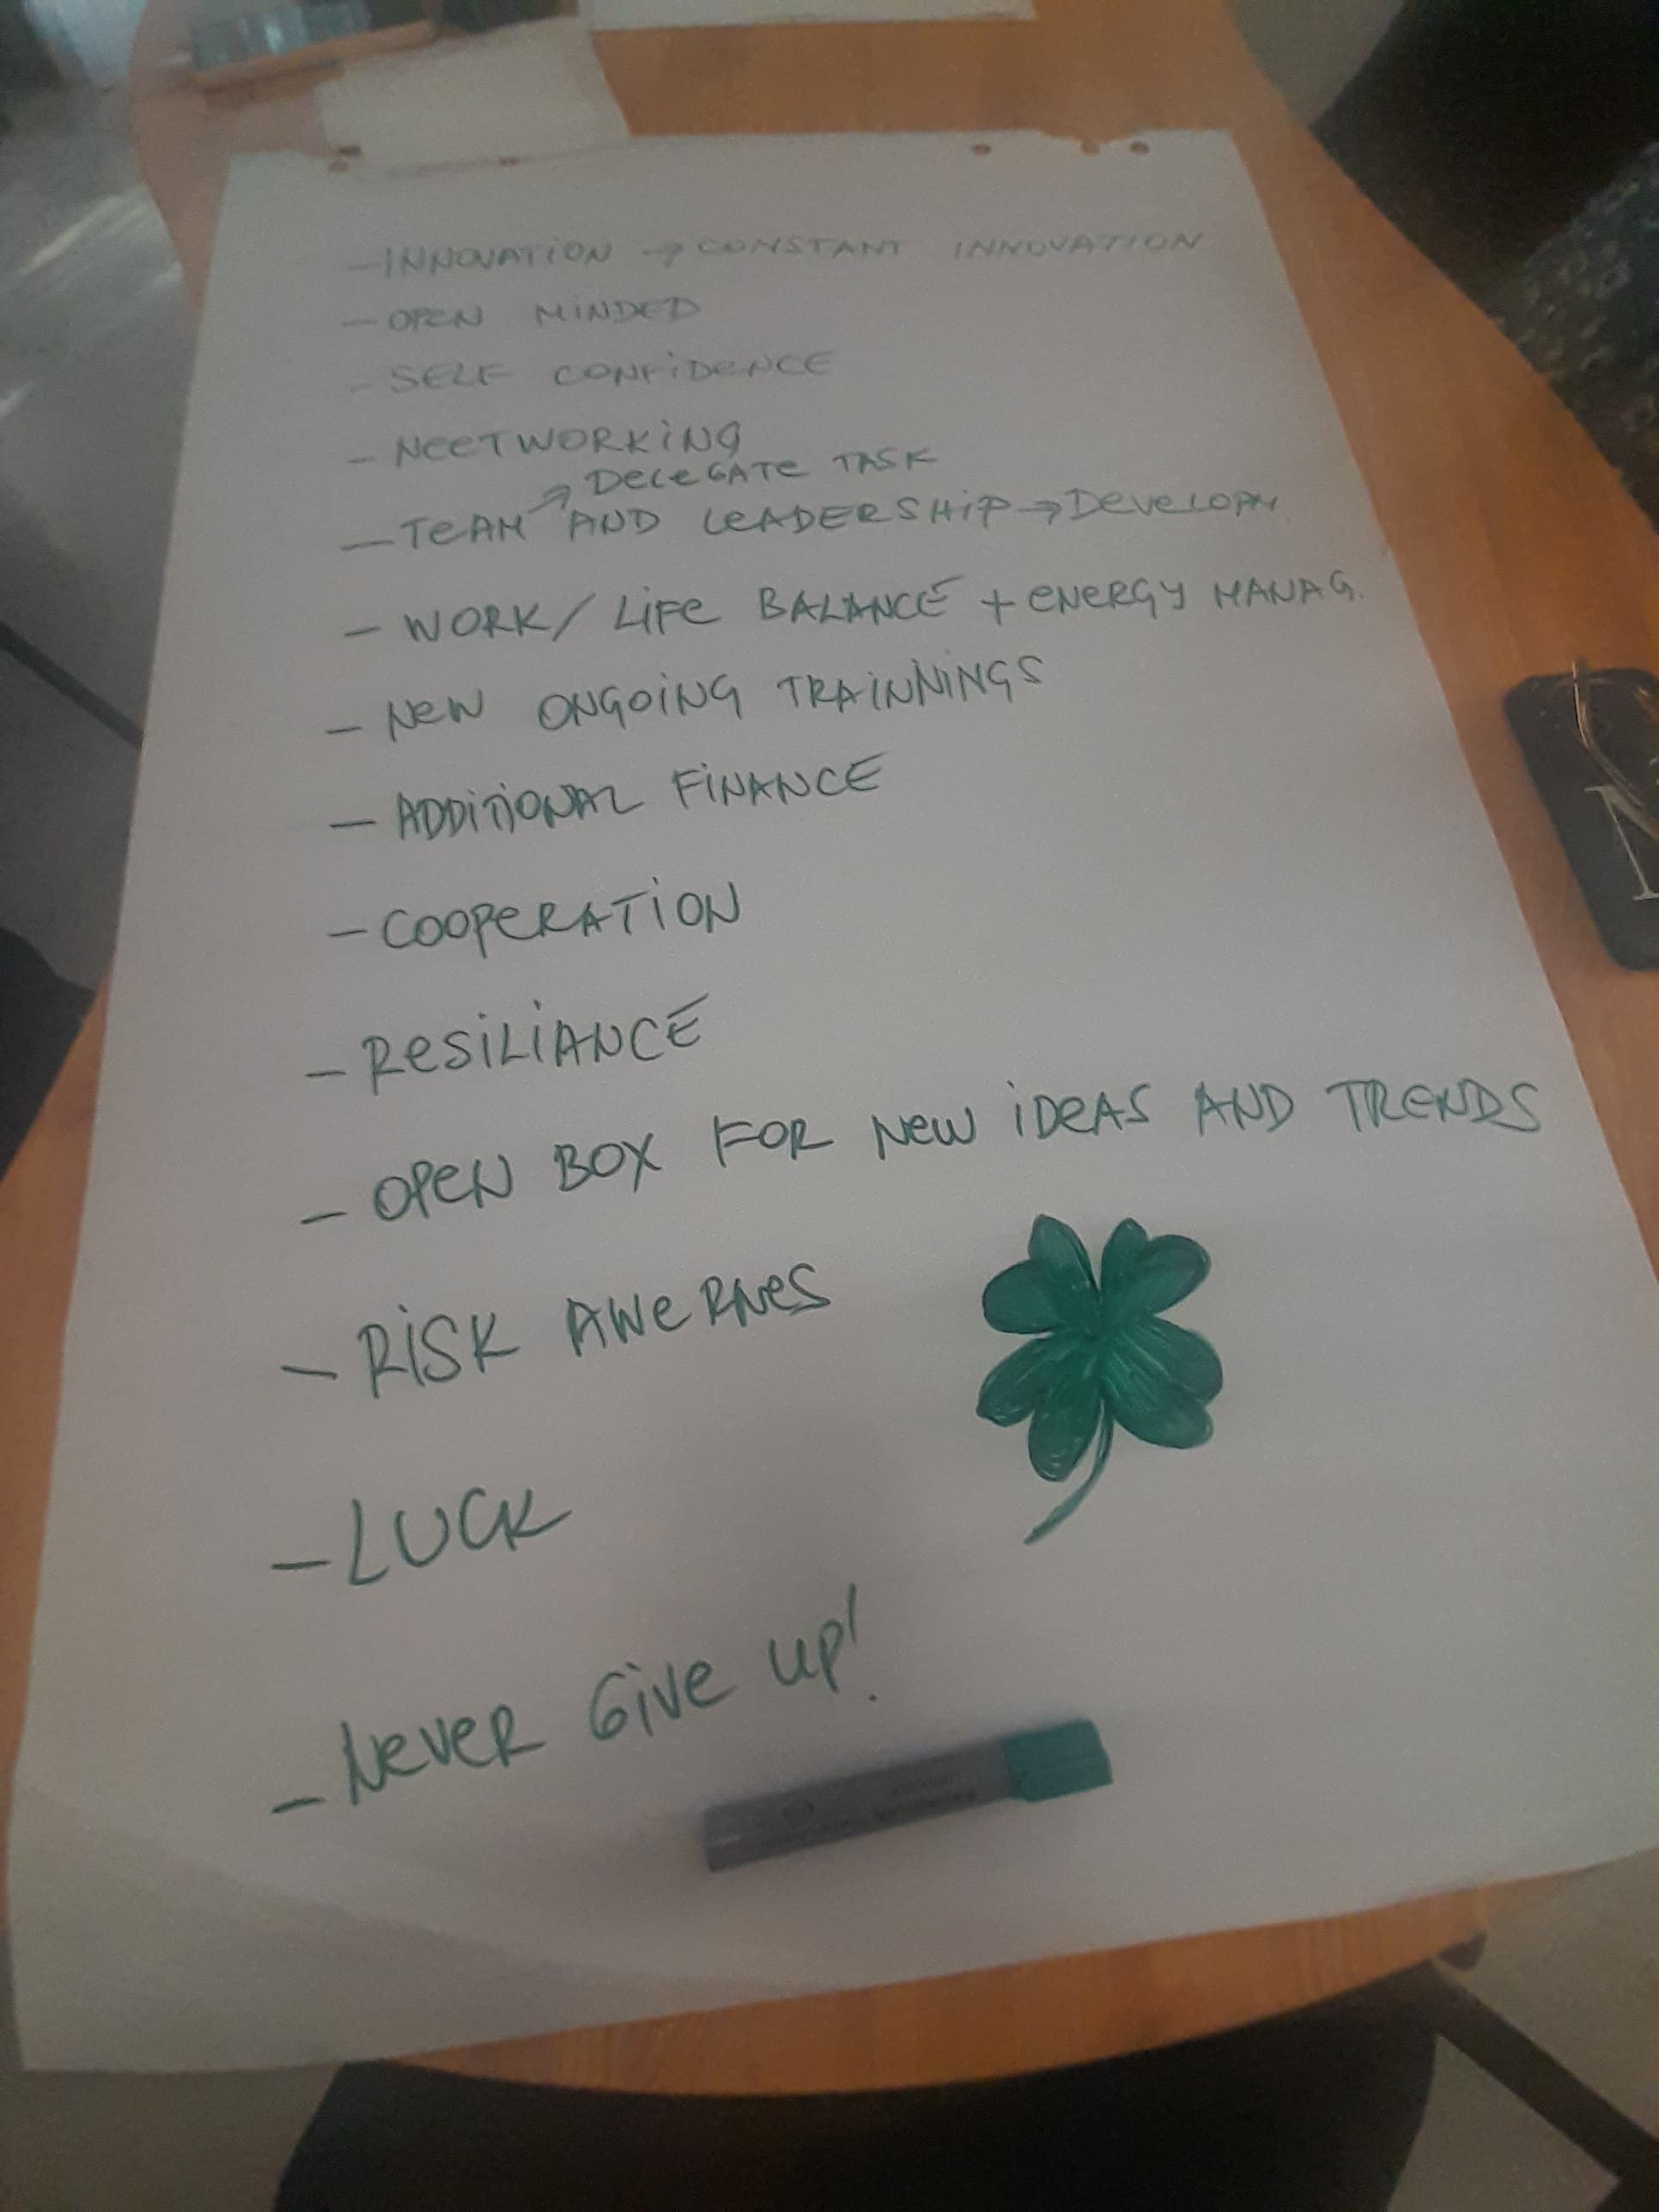 - INNOVATION → CONSTANT INNOVATION
- OPEN MINDED
- SELF CONFIDENCE
- NEETWORKING
→ DELEGATE TASK
- TEAM AND LEADERSHIP → DEVELOPM.
- WORK/ LIFE BALANCE + ENERGY MANAG.
- NEW ONGOING TRAINNINGS
- ADDITIONAL FINANCE
- COOPERATION
- RESILIANCE
- OPEN BOX FOR NEW IDEAS AND TRENDS
- RISK AWERNES
- LUCK
- NEVER GIVE UP!
N